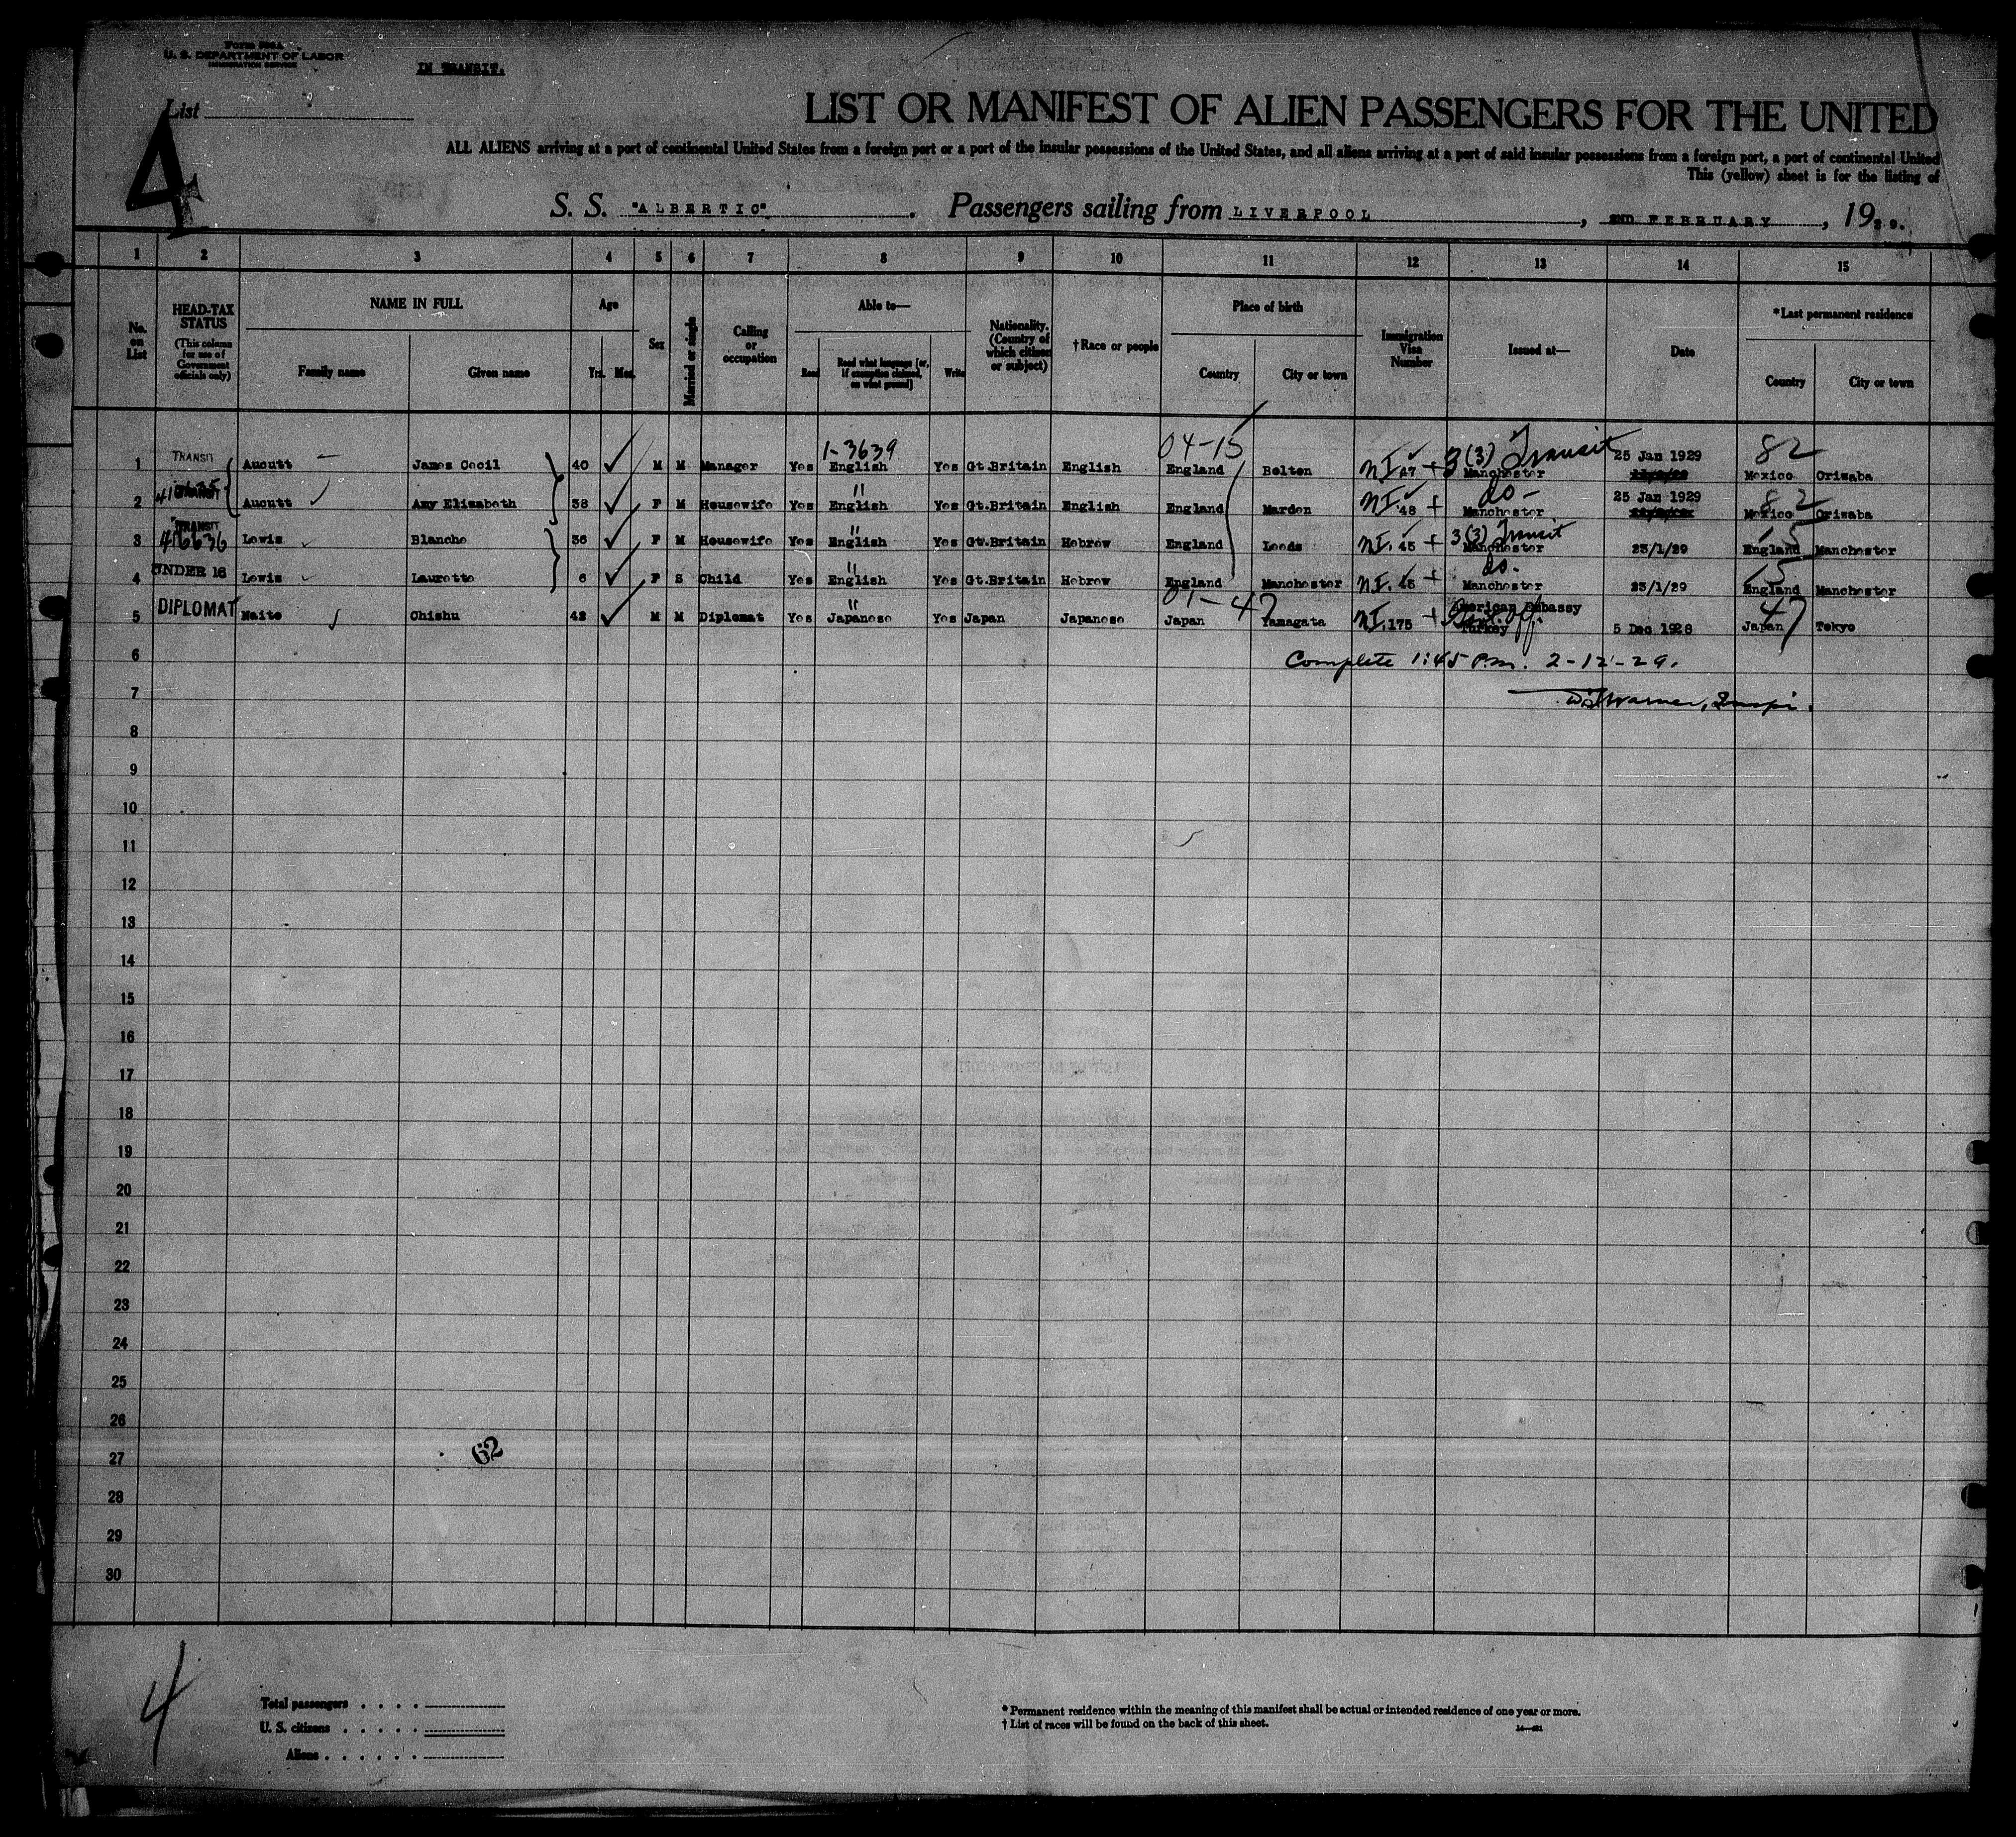 Form 500 A
U. S. DEPARTMENT OF LABOR
IMMIGRATION SERVICE
IN TRANSIT.
List
4
LIST OR MANIFEST OF ALIEN PASSENGERS FOR THE UNITED
ALL ALIENS arriving at a port of continental United States from a foreign port or a port of the insular possessions of the United States, and all aliens arriving at a port of said insular possessions from a foreign port, a part of continental United
This (yellow) sheet is for the listing of
S. S. "ALBERTIC". Passengers sailing from LIVERPOOL, 2ND FEBRUARY, 19
1 2 3 4 5 6 7 8 9 10 11 12 13 14 15
No. on List
HEAD-TAX STATUS (This column for use of Government officials only)
NAME IN FULL
Family name Given name
Age
Yrs. Mos.
Sex
Married or single
Calling or occupation
Able to—
Read Read what language [or, if exemption claimed, on what ground] Write
Nationality. (Country of which citizen or subject)
†Race or people
Place of birth
Country City or town
Immigration Visa Number
Issued at—
Date
*Last permanent residence
Country City or town
1-3639 04-15 3(3) Transit 82
1 TRANSIT Aucutt James Cecil 40 M M Manager Yes English Yes Gt.Britain English England Bolton NI 47 + Manchester 25 Jan 1929 Mexico Orizaba
2 TRANSIT Aucutt Amy Elizabeth 38 F M Housewife Yes " English Yes Gt.Britain English England Marden NI 48 + do- Manchester 25 Jan 1929 82 Mexico Orizaba
3 TRANSIT 416636 Lewis Blanche 36 F M Housewife Yes " English Yes Gt.Britain Hebrew England Leeds NI. 45 + 3(3) Transit Manchester 23/1/29 15 England Manchester
4 UNDER 16 Lewis Laurette 6 F S Child Yes " English Yes Gt.Britain Hebrew England Manchester NI. 45 + do. Manchester 23/1/29 15 England Manchester
01-47
5 DIPLOMAT Naito Chishu 42 M M Diplomat Yes " Japanese Yes Japan Japanese Japan Yamagata NI. 175 + American Embassy Govt. Off. Turkey 5 Dec 1928 47 Japan Tokyo
6 Complete 1:45 P.m. 2-12-29.
7 Warner, Inspr.
8
9
10
11
12
13
14
15
16
17
18
19
20
21
22
23
24
25
26
27
62
28
29
30
4
Total passengers . . . .
U. S. citizens . . . . .
Aliens . . . . . .
* Permanent residence within the meaning of this manifest shall be actual or intended residence of one year or more.
† List of races will be found on the back of this sheet.